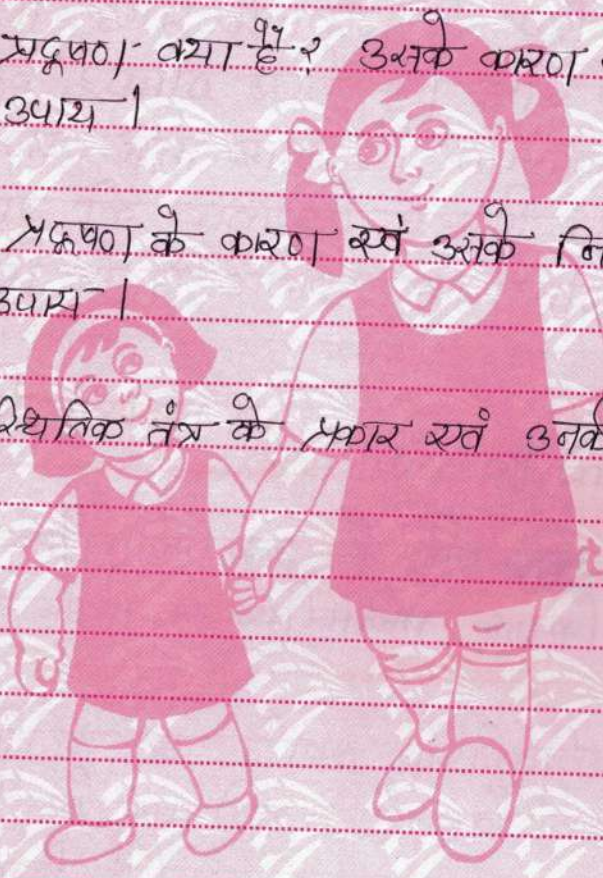 प्रदूषण क्या है? उसके कारण
उपाय।
प्रदूषण के कारण एवं उसके नि
उपाय।
स्थितिक तंत्र के प्रकार एवं उनके